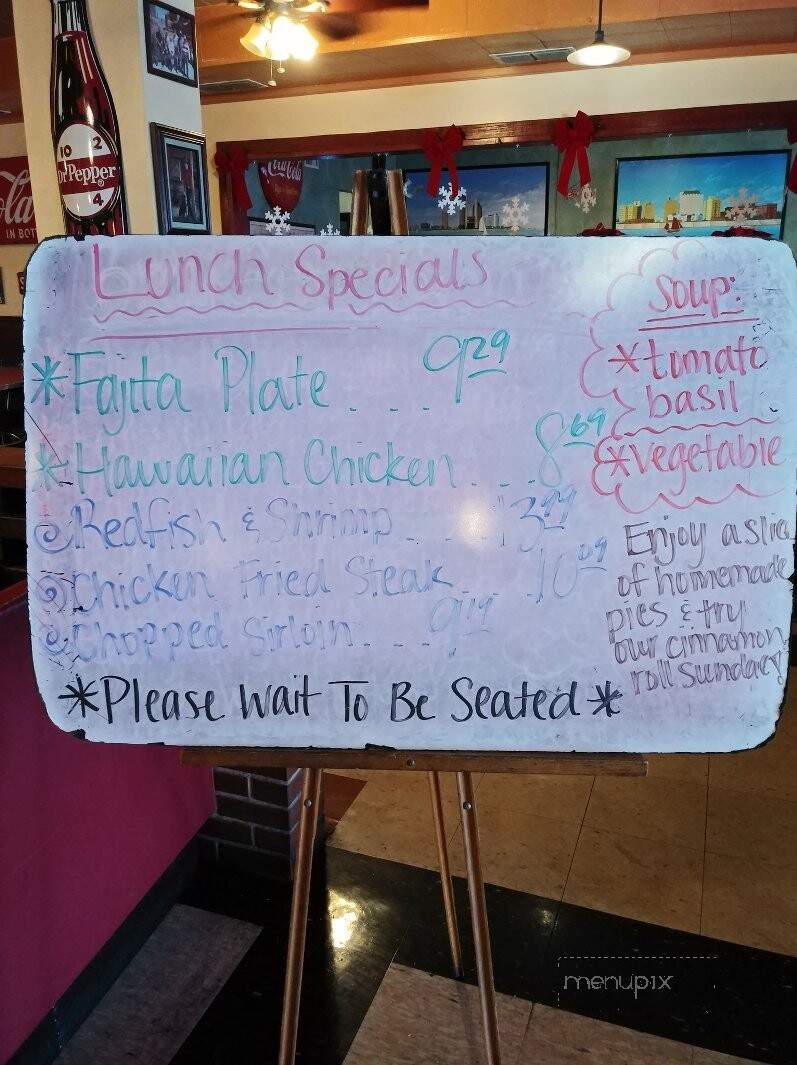 10 2
Dr Pepper
4
Coca-Cola
la
IN BOT
Lunch Specials
*Fajita Plate . . . . 9.29
*Hawaiian Chicken . . . 8.69
Redfish & Shrimp . . . 13.99
Chicken Fried Steak . . . 10.09
Chopped Sirloin . . . 9.19
*Please Wait To Be Seated*
Soup:
*tomato
basil
*vegetable
Enjoy a slice
of homemade
pies & try
our cinnamon
roll Sundaey
menupix